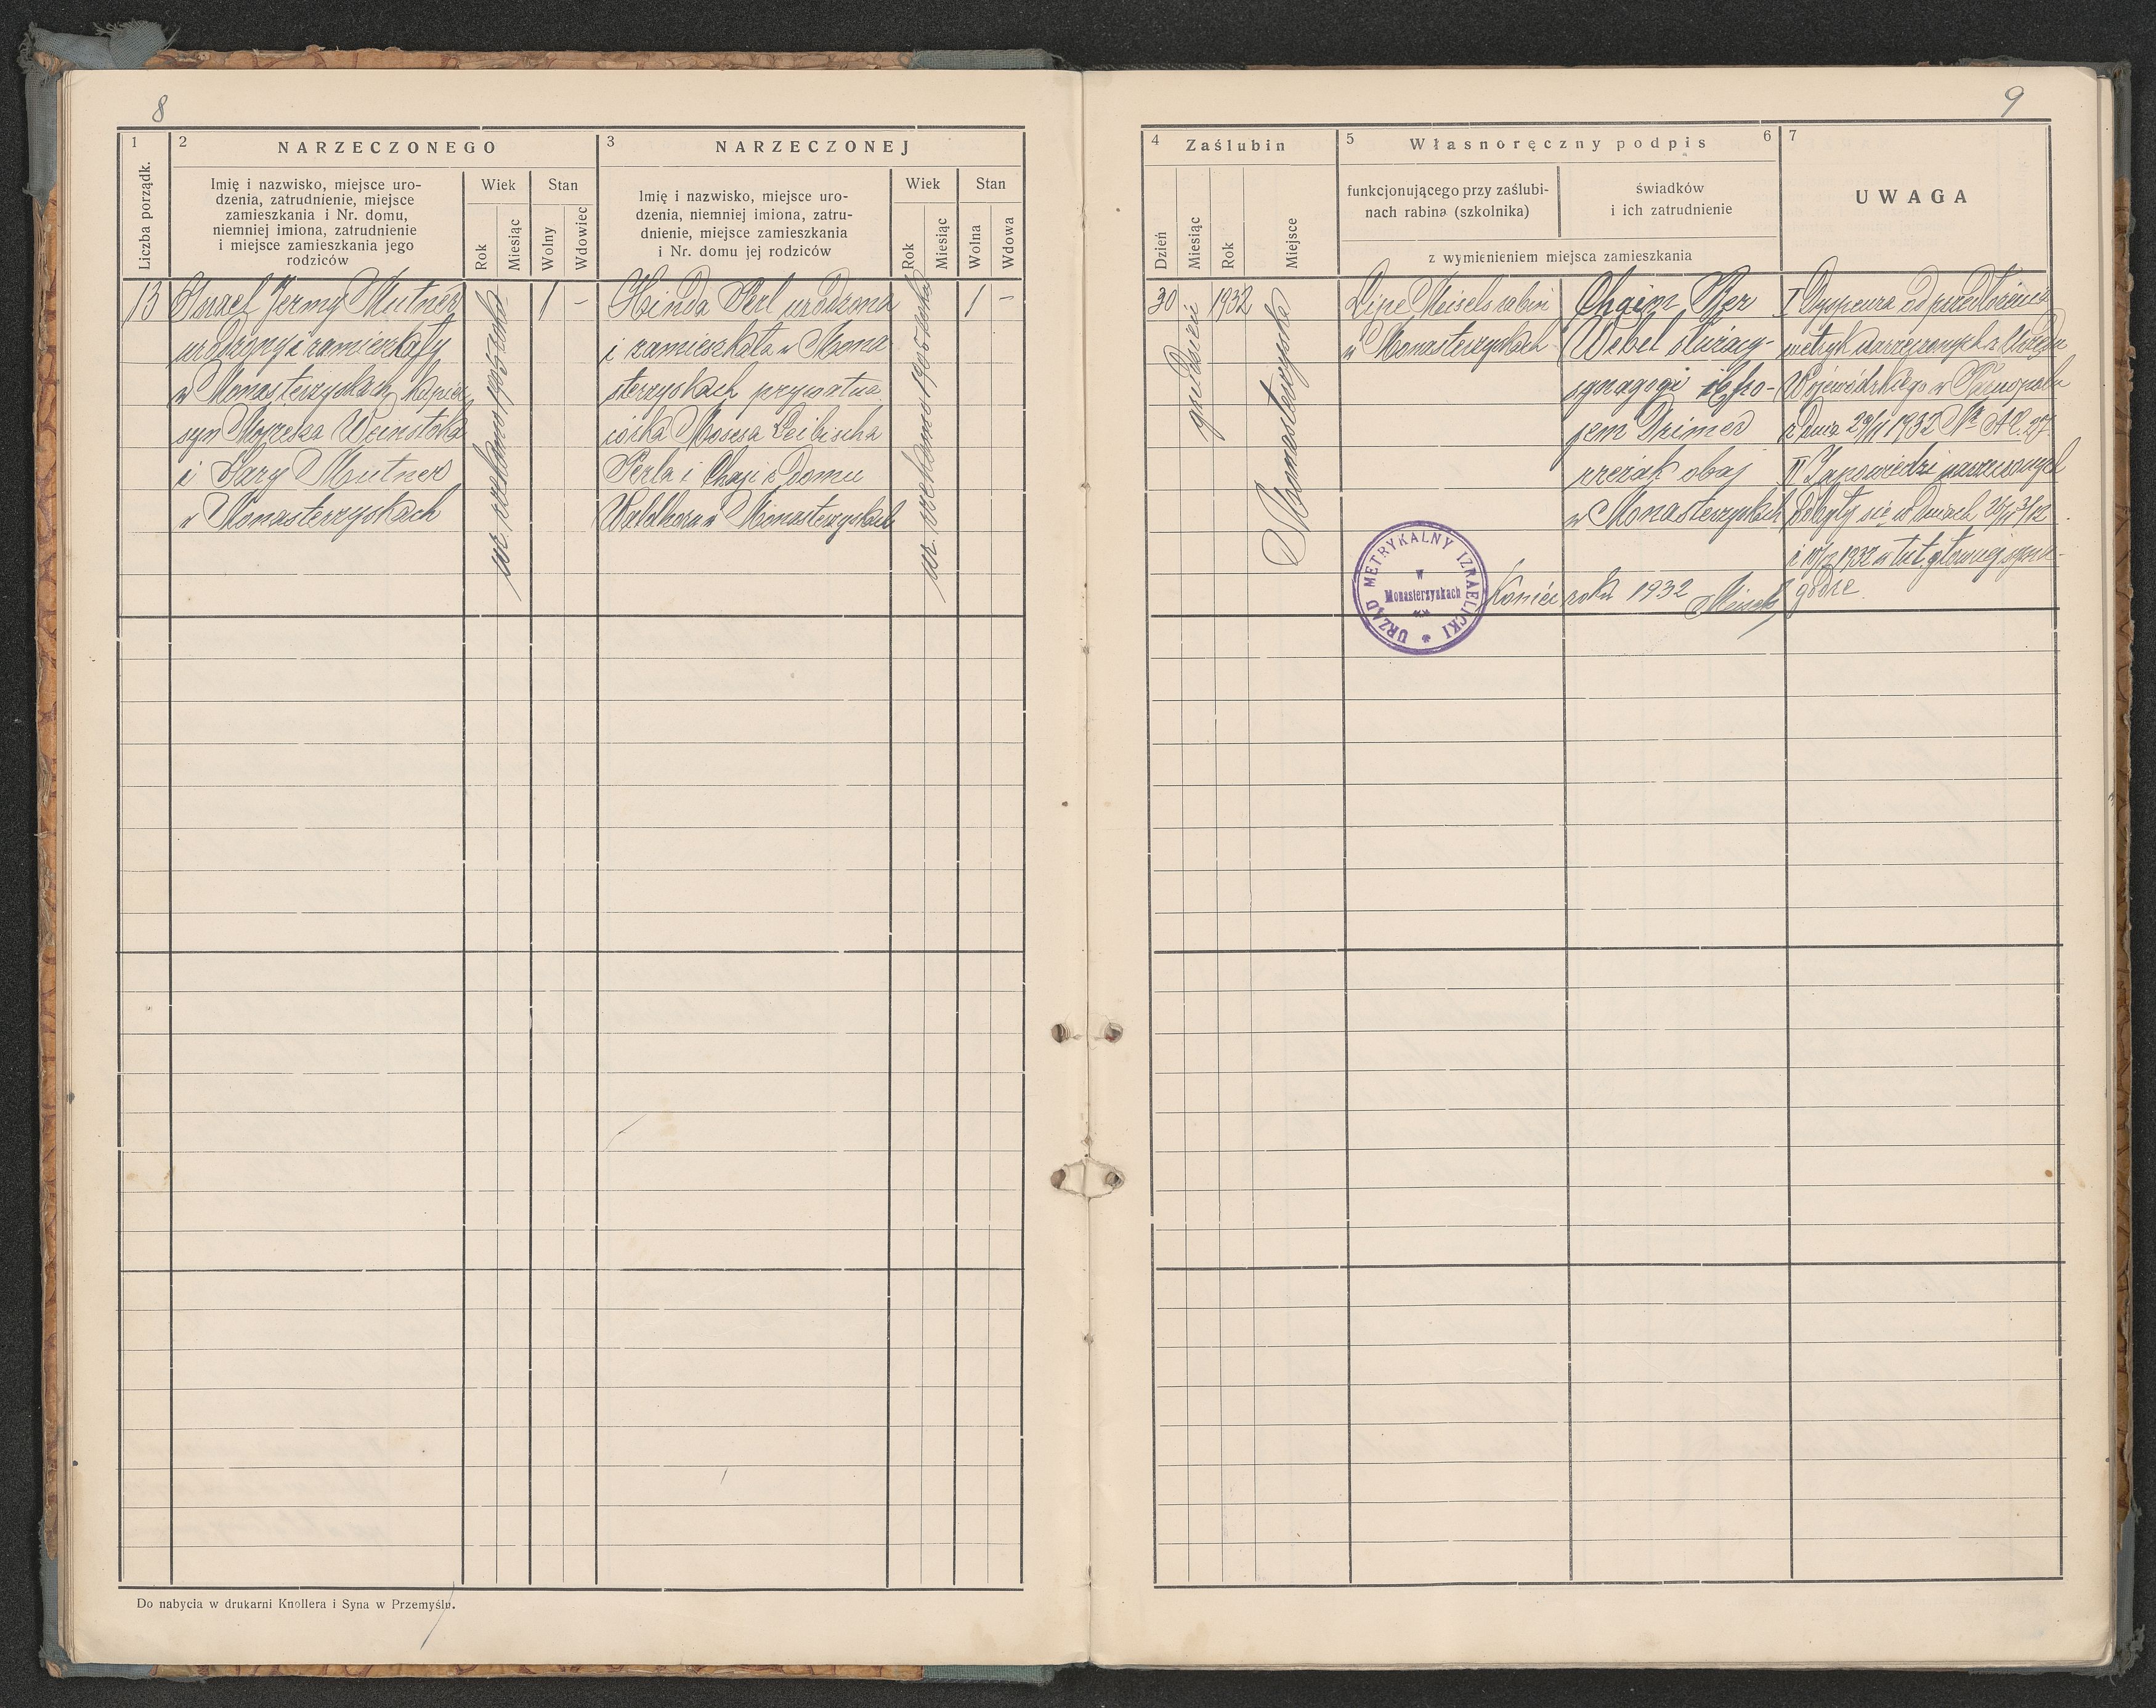 8
1
2
NARZECZONEGO
3
NARZECZONEJ
Liczba porządk.
Imię i nazwisko, miejsce uro-
dzenia, zatrudnienie, miejsce
zamieszkania i Nr. domu,
niemniej imiona, zatrudnienie
i miejsce zamieszkania jego
rodziców
Wiek
Stan
Rok
Miesiąc
Wolny
Wdowiec
Imię i nazwisko, miejsce uro-
dzenia, niemniej imiona, zatru-
dnienie, miejsce zamieszkania
i Nr. domu jej rodziców
Wiek
Stan
Rok
Miesiąc
Wolna
Wdowa
13
Israel Jermy Mutner
urodzony i zamieszkały
w Monasterzyskach, kupiec
syn Mojżesza Weinstoka
i Sary Mutner
w Monasterzyskach
ur.
1
-
Hinda Perl urodzona
i zamieszkała w Mona
sterzyskach prywatna
córka Mosesa Leibischa
Perla i Chaji z domu
Waldhorn w Monasterzyskach
ur.
1
-
Do nabycia w drukarni Knollera i Syna w Przemyślu.
9
4
Zaślubin
5
Własnoręczny podpis
6
7
Dzień
Miesiąc
Rok
Miejsce
funkcjonującego przy zaślubi-
nach rabina (szkolnika)
świadków
i ich zatrudnienie
z wymienieniem miejsca zamieszkania
UWAGA
30
grudzień
1932
Monasterzyska
Lipe Meisels rabin
w Monasterzyskach
Chaim Ber
Webel służący
synagogi
Drimer
rzezak obaj
w Monasterzyskach
I Dyspensa od przedłożenia
metryk narzeczonych z Urzędu
Wojewódzkiego w Tarnopolu
z dnia 29/11 1932 Nr
II Zapowiedzi narzeczonych
odbyły się w dniach 3/12
i 10/12 1932 w tut. głównej syna-
godze
URZĄD METRYKALNY IZRAELICKI
w
Monasterzyskach
Koniec roku 1932
Meisels